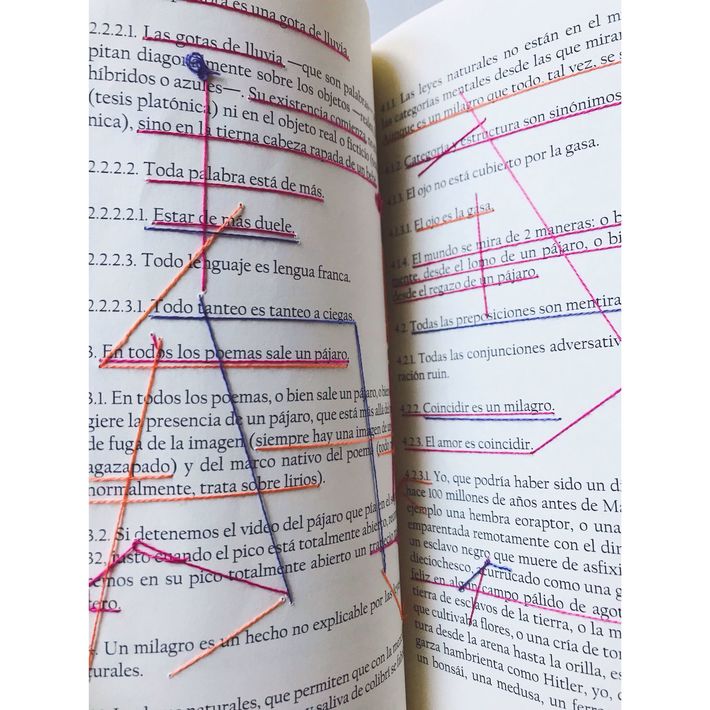 es una gota de lluvia
2.2.2.1. Las gotas de lluvia —que son palabras—
pitan diagonalmente sobre los objetos
híbridos o azules—. Su existencia comienza
(tesis platónica) ni en el objeto real o ficticio
nica), sino en la tierna cabeza rapada de un
2.2.2.2. Toda palabra está de más.
2.2.2.2.1. Estar de más duele.
2.2.2.3. Todo lenguaje es lengua franca.
2.2.2.3.1. Todo tanteo es tanteo a ciegas.
3. En todos los poemas sale un pájaro.
3.1. En todos los poemas, o bien sale un pájaro, o bien
giere la presencia de un pájaro, que está más allá del
de fuga de la imagen (siempre hay una imagen de un
agazapado) y del marco nativo del poema (todo
normalmente, trata sobre lirios).
3.2. Si detenemos el video del pájaro que pía en el
justo cuando el pico está totalmente abierto,
emos en su pico totalmente abierto un
tero.
Un milagro es un hecho no explicable por las
turales.
naturales, que permiten que con la
y saliva de colibrí se
4.1.1. Las leyes naturales no están en el
las categorías mentales desde las que
Aunque es un milagro que todo, tal vez, se
4.1.2. Categoría y estructura son sinónimos
4.1.3. El ojo no está cubierto por la gasa.
4.1.3.1. El ojo es la gasa.
4.1.4. El mundo se mira de 2 maneras: o
mente, desde el lomo de un pájaro, o
desde el regazo de un pájaro.
4.2. Todas las preposiciones son
4.2.1. Todas las conjunciones
ración ruin.
4.2.2. Coincidir es un milagro.
4.2.3. El amor es coincidir.
4.2.3.1. Yo, que podría haber sido un
hace 100 millones de años antes de
ejemplo una hembra eoraptor, o una
emparentada remotamente con el
un esclavo negro que muere de
dieciochesco, acurrucado como una
feliz en algún campo pálido de
tierra de esclavos de la tierra, o la
que cultivaba flores, o una cría de
tura desde la arena hasta la orilla,
garza hambrienta como Hitler, yo,
un bonsái, una medusa, un